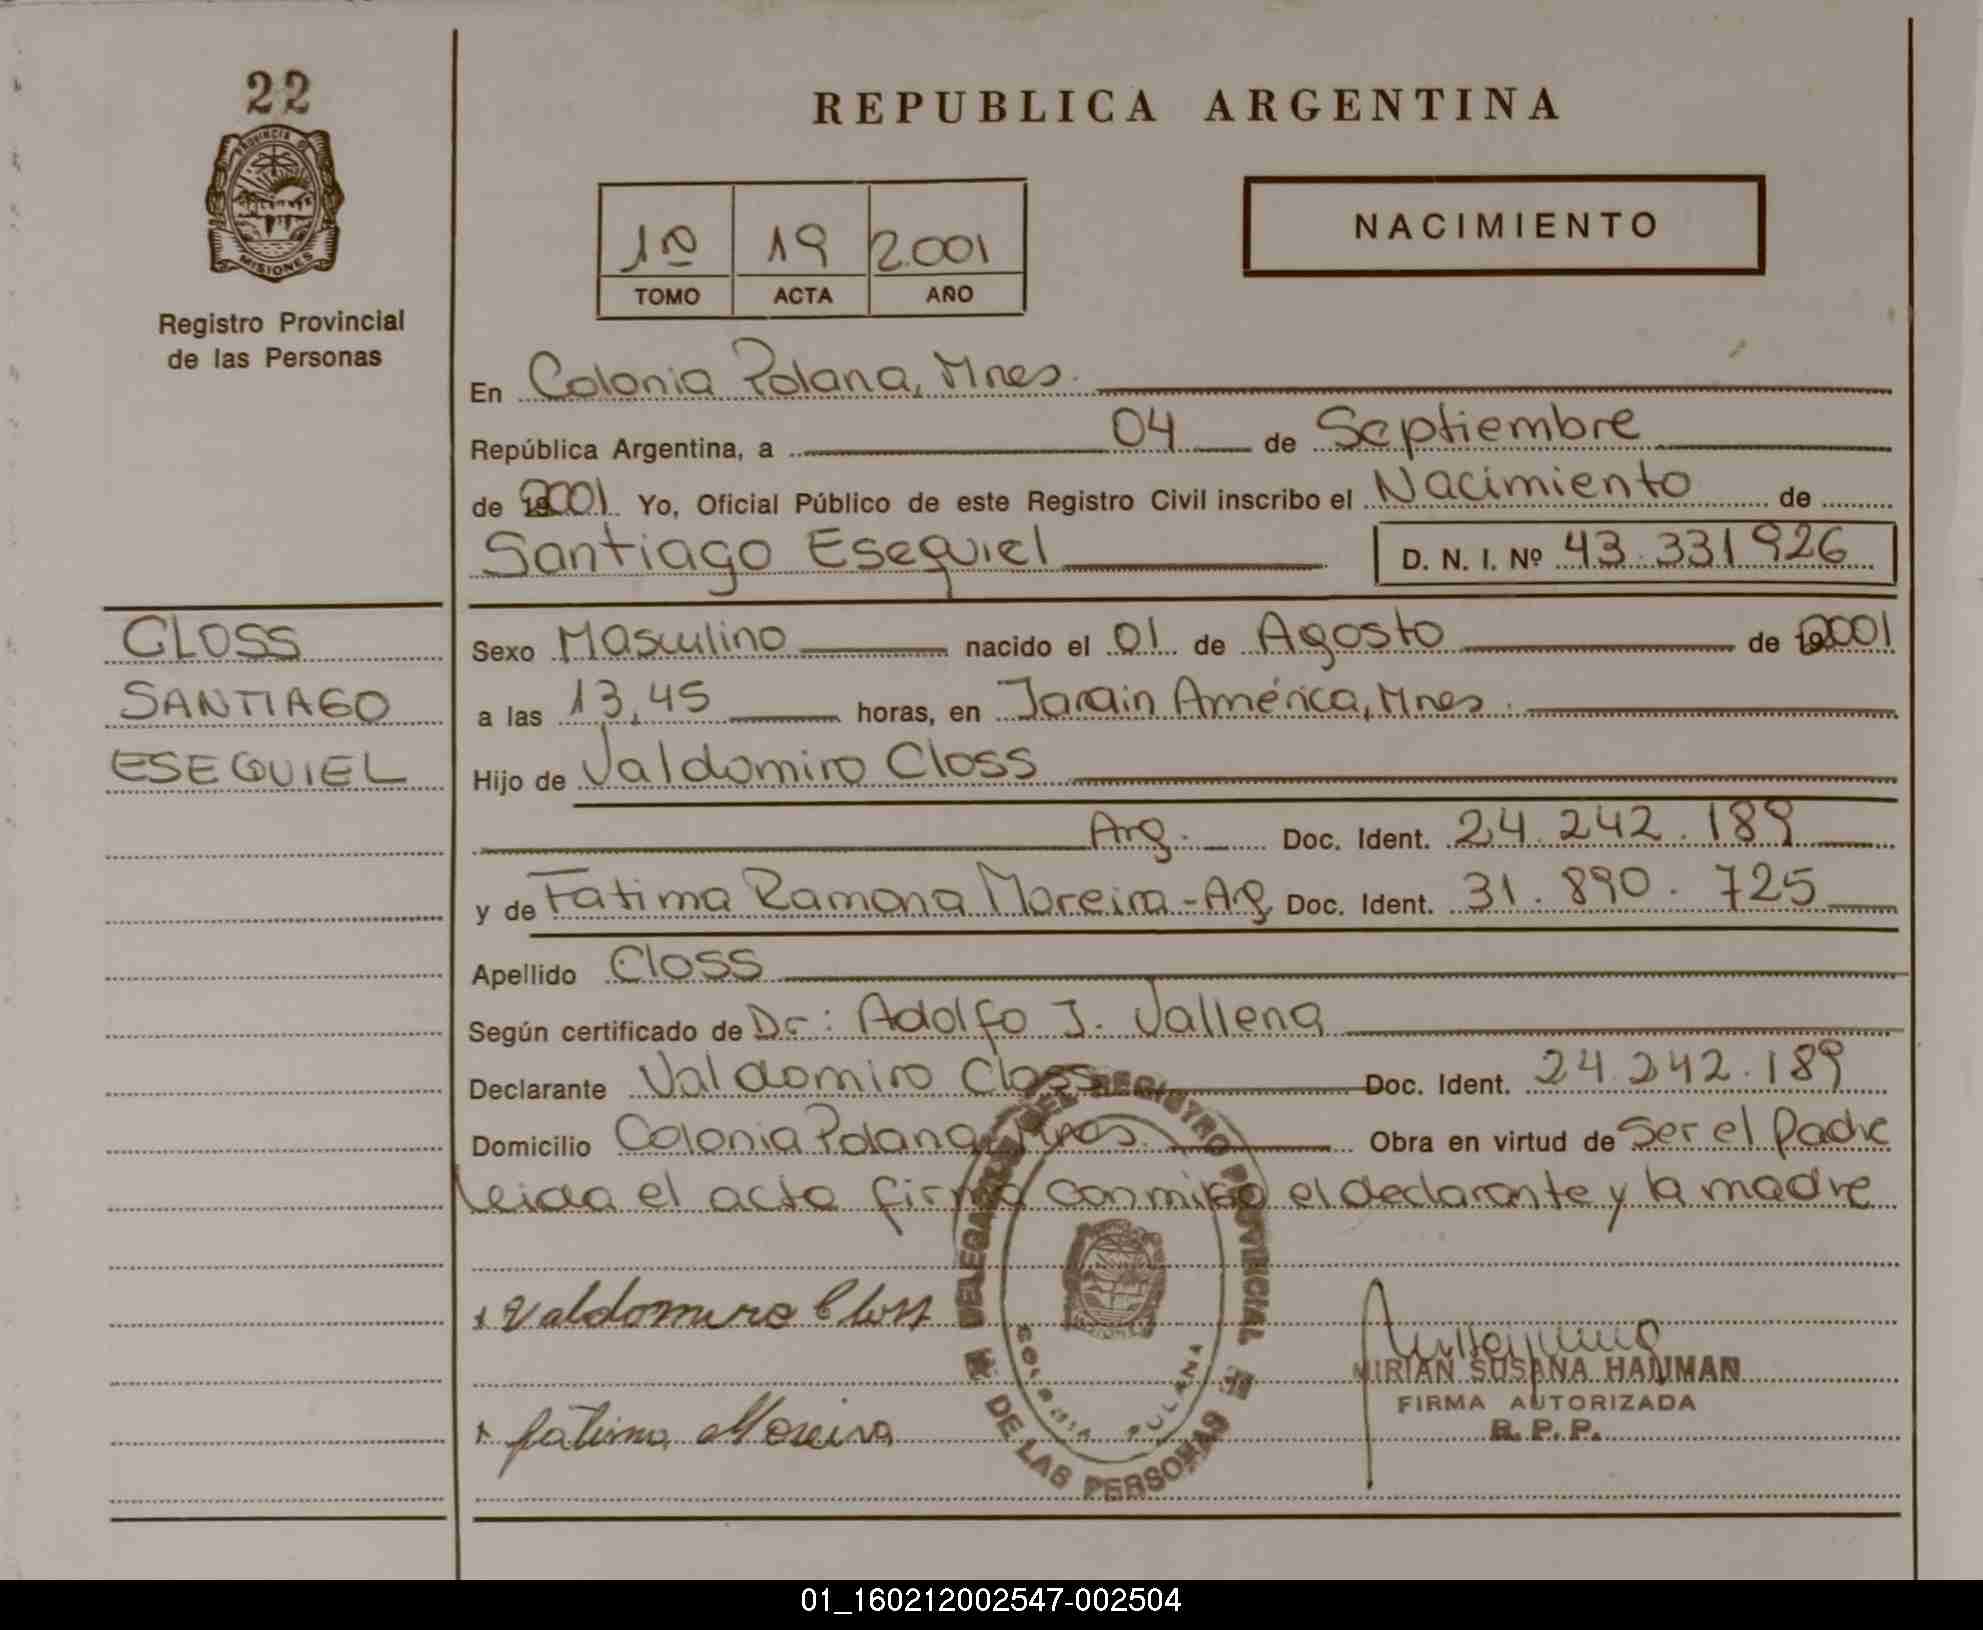 22
PROVINCIA DE
MISIONES
Registro Provincial
de las Personas
REPUBLICA ARGENTINA
1º 19 2.001
TOMO ACTA AÑO
NACIMIENTO
En Colonia Polana, Mnes.
República Argentina, a 04 de Septiembre
de 2001 Yo, Oficial Público de este Registro Civil inscribo el Nacimiento de
Santiago Esequiel D. N. I. Nº 43.331926
CLOSS
SANTIAGO
ESEQUIEL
Sexo Masculino nacido el 01 de Agosto de 2001
a las 13,45 horas, en Jardin América, Mnes.
Hijo de Valdomiro Closs
Arg. Doc. Ident. 24.242.189
y de Fatima Ramona Moreira - Arg Doc. Ident. 31.890.725
Apellido Closs
Según certificado de Dr: Adolfo J. Vallena
Declarante Valdomiro Closs Doc. Ident. 24.242.189
Domicilio Colonia Polana, Mnes. Obra en virtud de Ser el Padre
leida el acta firma conmigo el declarante y la madre
Valdomiro Closs
fatima Moreira
DEL REGISTRO PROVINCIAL
DE LAS PERSONAS
COLONIA POLANA
MIRIAN SUSANA HANMAN
FIRMA AUTORIZADA
R. P. P.
01_160212002547-002504